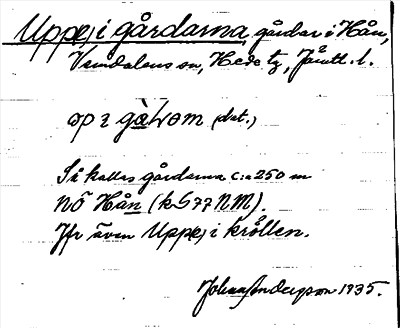 Uppe i gårdarna, gårdar i Hån,
Vemdalens sn, Hede tg, Jämtl. l.
op i gàɫrom (dat.)
Så kallas gårdarna c:a 250 m
NÖ Hån (k S 77 NM).
Jfr även Uppe i kröllen.
Johan Anderson 1935.